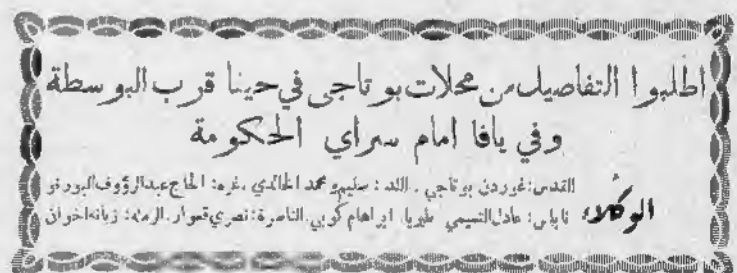 اطلبوا التفاصيل من محلات بوتاجي في حيفا قرب البوسطة
وفي يافا امام سراي الحكومة
الوكلاء
القدس: غوردن بوتاجي . اللد: سليم ومحمد الخالدي . غزه: الحاج عبدالرؤوف البورنو
نابلس: عادل التميمي طبريا: ابراهام كوبي. الناصرة: نصري قعوار. الرمله: زبانه اخوان